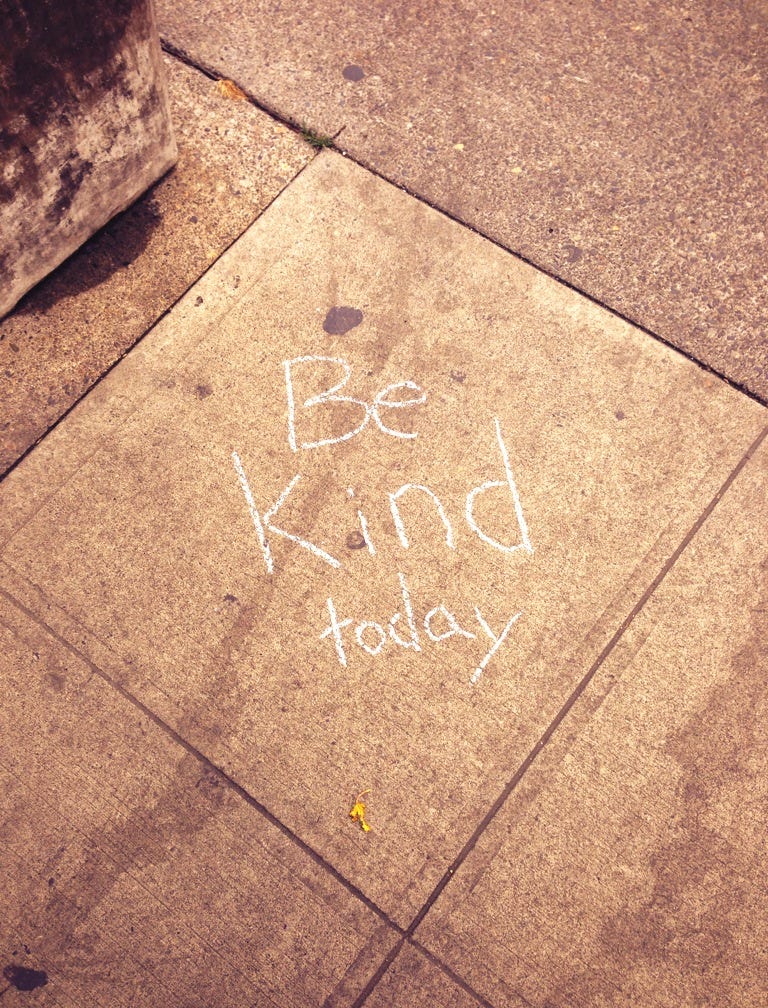 Be
kind
today